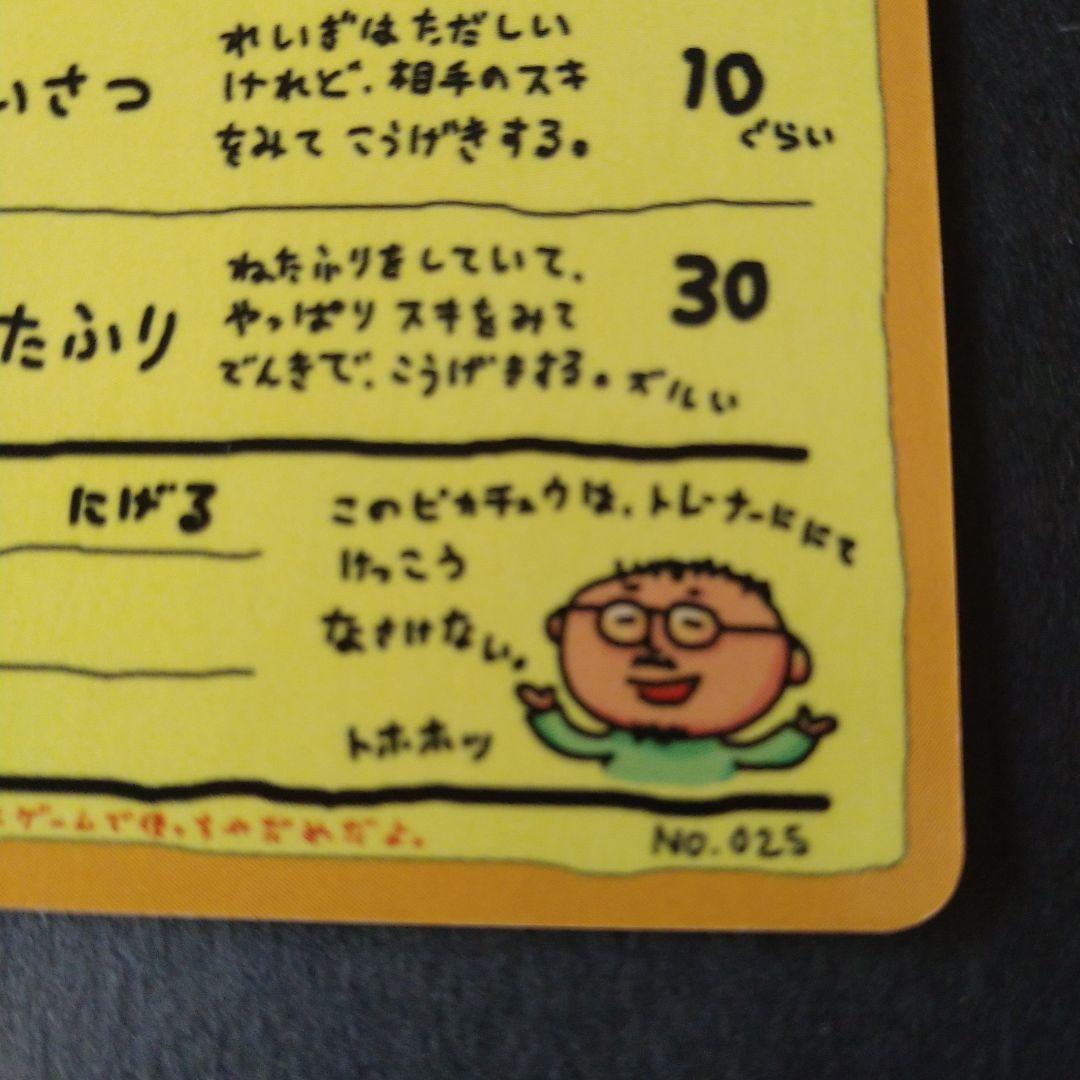 いさつ
れいぎはただしい
けれど、相手のスキ
をみて こうげきする。
10
ぐらい
たふり
ねたふりをしていて、
やっぱり スキをみて
でんきで、こうげきする。ズルい
30
にげる
このピカチュウは、トレーナーににて
けっこう
なさけない。
トホホッ
ゲームで使っちゃだめだよ。
NO.025